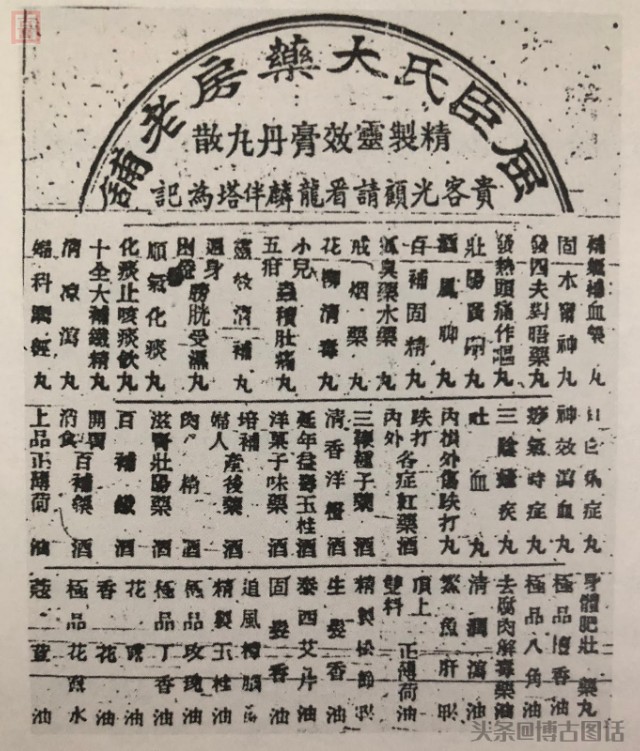 屈臣氏大藥房老鋪
精製靈效膏丹丸散
貴客光顧請看龍麟伴塔為記
補氣補血藥丸
固本寧神丸
發四夫對晤藥丸
發熱頭痛作嘔丸
壯陽廣嗣丸
酒風脚丸
百補固精丸
狐臭藥水藥丸
戒烟藥丸
花柳清毒丸
小兒五疳蟲積肚痛丸
靈效清補丸
通身膀胱受濕丸
順氣化痰丸
化痰止咳痰飲丸
十全大補鐵精丸
清凉瀉丸
婦科調經丸
紅白痢症丸
神效瀉血丸
痧氣時症丸
三陰瘧疾丸
吐血丸
內損外傷跌打丸
跌打內外各症紅藥酒
三鞭種子藥酒
清香洋橙酒
延年益壽玉桂酒
洋菓子味藥酒
培補婦人產後藥酒
肉精酒
滋腎壯陽藥酒
百補鐵酒
開胃消食百補藥酒
上品正薄荷油
身體肥壯藥丸
極品檀香油
極品八角油
去腐肉解毒藥油
清潤瀉油
鰵魚肝油
頂上雙料正薄荷油
精製松節油
生髮香油
泰西艾片油
固髮香油
追風樟腦油
精製玉桂油
極品玫瑰油
極品丁香油
花露油
香花油
極品花露水
蔻荳油
头条@博古图话